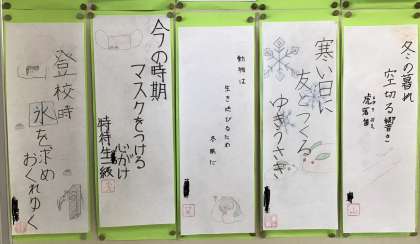 冬の暮れ
空切る響き
虎落笛
寒い日に
友とつくる
ゆきうさぎ
動物は
生き延びるため
冬眠だ
今の時期
マスクをつける
心がけ
特待生級
登校時
氷を求め
おくれゆく